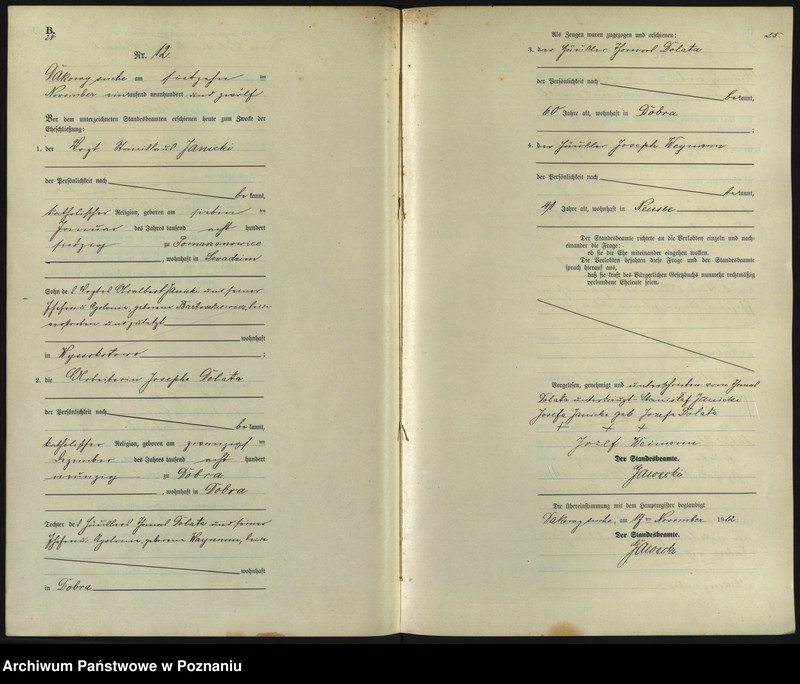 B.
Nr. 12.
am siebzehnten
November eintausend neunhundert und zwölf
Vor dem unterzeichneten Standesbeamten erschienen heute zum Zwecke der
Eheschließung:
1. der Vogt Stanislaus Janicki
der Persönlichkeit nach
be kannt,
katholischer Religion, geboren am sieben ten
Januar des Jahres tausend acht hundert
zu
, wohnhaft in
Sohn des Vogtes Adalbert Janicki und seiner
Ehefrau Apolonie, geborene beide
verstorben und zuletzt
wohnhaft
in Wyssokotowo ;
2. die Arbeiterin Josepha Dolata
der Persönlichkeit nach
be kannt,
katholischer Religion, geboren am ten
Dezember des Jahres tausend acht hundert
neunzig zu Dobra
, wohnhaft in Dobra
Tochter des Häuslers Thomas Dolata und seiner
Ehefrau Apolonie, geborene Weymann, beide
wohnhaft
in Dobra
25.
Als Zeugen waren zugezogen und erschienen:
3. der Häusler Thomas Dolata
der Persönlichkeit nach
be kannt,
60 Jahre alt, wohnhaft in Dobra
;
4. der Häusler Joseph Weymann
der Persönlichkeit nach
be kannt,
41 Jahre alt, wohnhaft in
Der Standesbeamte richtete an die Verlobten einzeln und nach-
einander die Frage:
ob sie die Ehe miteinander eingehen wollen.
Die Verlobten bejahten diese Frage und der Standesbeamte
sprach hierauf aus,
daß sie kraft des Bürgerlichen Gesetzbuchs nunmehr rechtmäßig
verbundene Eheleute seien.
Vorgelesen, genehmigt und unterschrieben vom Thomas
Dolata unterkreuzt Stanislaf Janicki
Josefa Janicka geb. Josefa Dolata
+ + +
Josef Weimann
Der Standesbeamte.
Die Übereinstimmung mit dem Hauptregister beglaubigt
, am 17 ten November 1912
Der Standesbeamte.
Archiwum Państwowe w Poznaniu